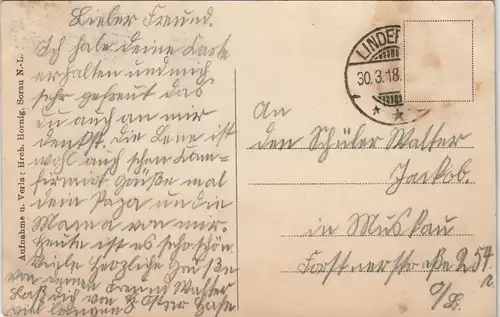 Lieber Freund.
Ich habe deine Karte
erhalten und mich
sehr gefreut das
du auch an mir
denkst. Die Lene ist
wohl auch schon Kon-
firmirt Grüße mal
dem Papa und die
Mama von mir.
Heute ist es so schön.
Viele Herzliche Grüße
von deinen Freund Walter
Laß dich von Oster Hase
viel bringen
Aufnahme u. Verlag Hrch. Hornig, Sorau N.-L.
LINDER
30.3.18.
An
den Schüler Walter
Jackob.
in Muskau
Forstnerstraße 254
O/L.